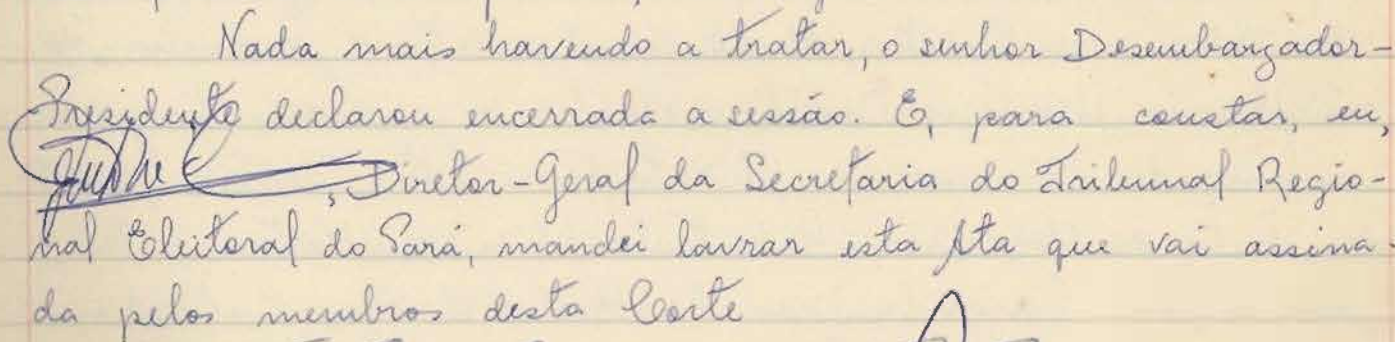 Nada mais havendo a tratar, o senhor Desembargador-
Presidente declarou encerrada a sessão. E, para constar, eu,
, Diretor-Geral da Secretaria do Tribunal Regio-
nal Eleitoral do Pará, mandei lavrar esta Ata que vai assina-
da pelos membros desta Corte